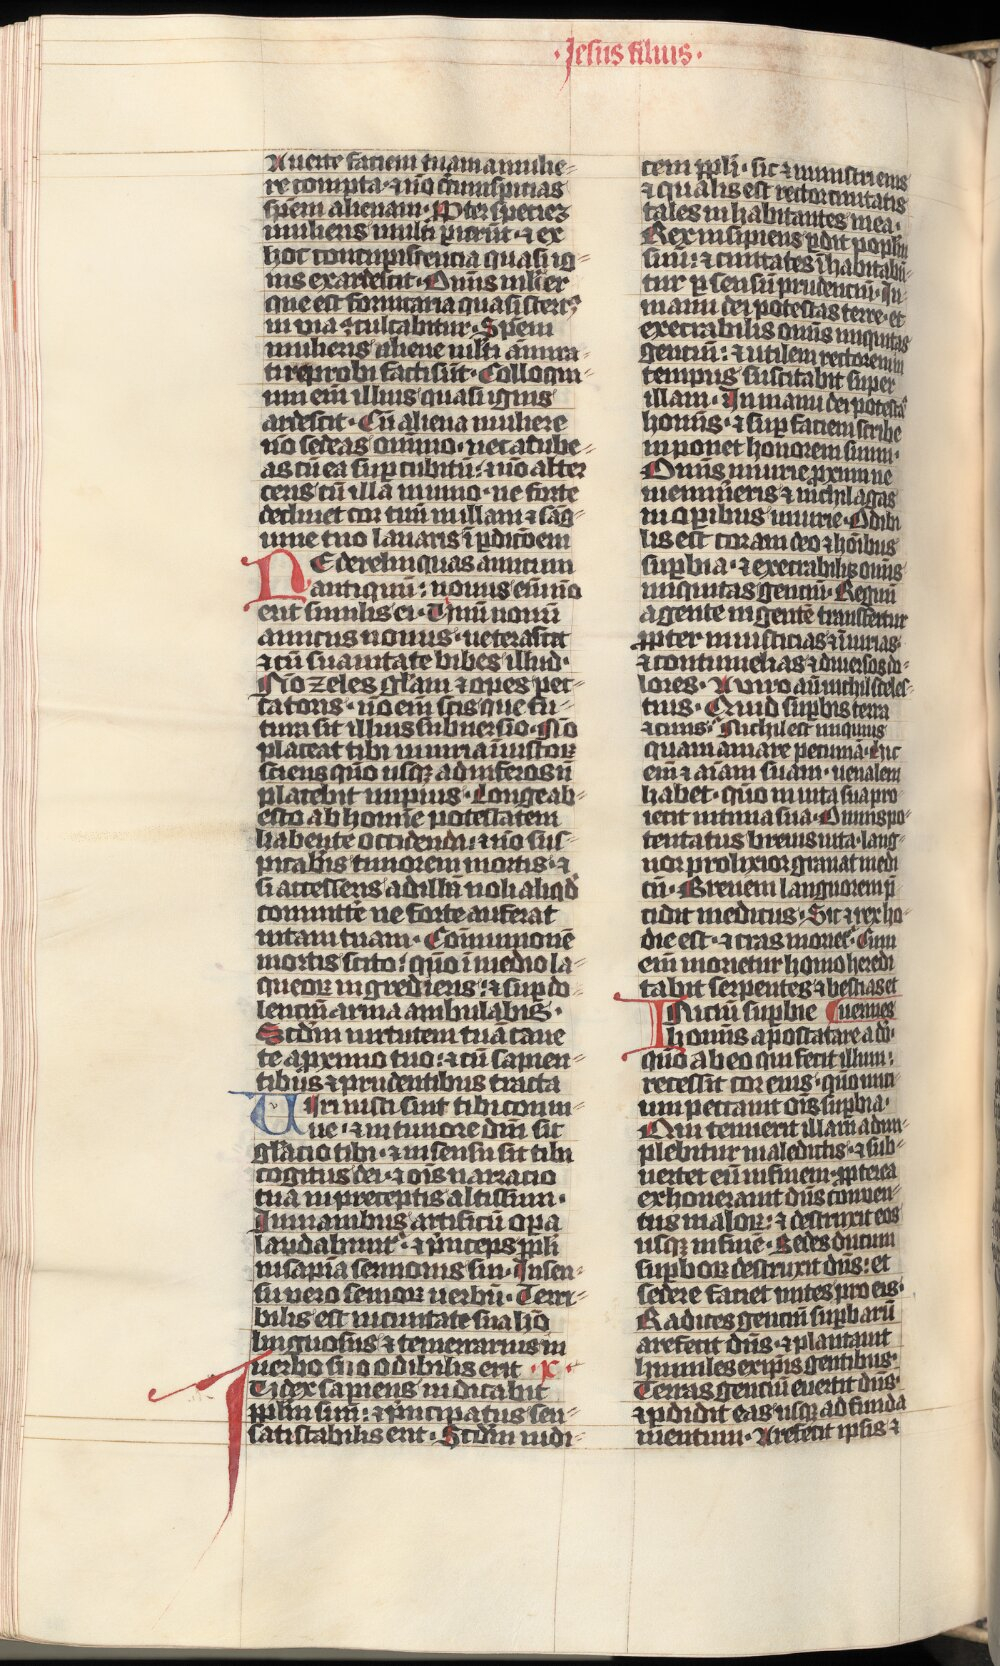 ·Jesus filius·
Auerte faciem tuam a mulie⸗
re compta· ⁊ nō cīrcūspicias
spēm alienam· Ꝓpter speciez
mulieris multi perierūt· ⁊ ex
hoc concupiscencia quasi ig⸗
nis exardescit· Omīs mulier
que est fornicaria quasi sterc⁹
in via cōculcabitur· Spēm
mulieris aliene multi āmira⸗
ti reprobi facti sūt· Colloqui⸗
um em̄ illius quasi ignis
ardescit· Cū aliena muliere
nō sedeas omīno· nec accūbe⸗
as cū ea suꝑ cubitū· ⁊ nō alter
ceris cū illa in uino· ne forte
declinet cor tuū in illam ⁊ sāg⸗
uine tuo labaris ī ꝑdicōem
NE derelinquas amicum
antiquū: nouus em̄ nō
erit similis ei· Vinū nouū
amicus nouus· ueterascet
⁊ cū suauitate bibes illud·
Nō zeles gl̄am ⁊ opes pec⸗
catoris· nō em̄ scis que fu⸗
tura sit illius subuersio· Nō
placeat tibi iniuria iniustoꝝ
sciens qūo usqꝫ ad inferos nō
placebit impius· Longe ab⸗
esto ab homīe potestatem
habente occidendi: ⁊ nō sus⸗
picabis timorem mortis· ⁊
si accesseris ad illū noli aliqd̄
committe ne forte auferat
uitam tuam· Cōmunionē
mortis scito: qūo ī medio la⸗
queoꝝ ingredieris: ⁊ suꝑ do⸗
lenciū arma ambulabis·
Scdm̄ uirtutem tuā caue
te a ꝓximo tuo: ⁊ cū sapien⸗
tibus ⁊ prudentibus tracta
Viri iusti sint tibi conui⸗
ue· ⁊ in timore dei sit
gl̄acio tibi· ⁊ in sensu sit tibi
cogitus dei· ⁊ oīs narracio
tua in preceptis altissimi·
In manibus artificū opa
laudabunt̄· ⁊ p̄nceps ppl̄i
in sapīa sermonis sui· In sen⸗
su uero senioꝝ uerbū· Terri⸗
bilis est in ciuitate sua hō
linguosus ⁊ temerarius in
uerbo suo odibilis erit ·x·
Iudex sapiens iudicabit
ppl̄m suū: ⁊ p̄ncipatus sen⸗
sati stabilis erit· Scdm̄ iudi⸗
cem ppl̄i· sic ⁊ ministri eius
⁊ qualis est rector ciuitatis
tales inhabitantes in ea·
Rex insipiens ꝑdit popl̄m
suū: ⁊ ciuitates īhabitabū
tur ꝑ sensū prudenciū· In
manu dei potestas terre· et
execrabilis om̄is iniquitas
genciū: ⁊ utilem rectorem in
tempus suscitabit super
illam· In manu dei potestas
homīs· ⁊ suꝑ faciem scribe
inponet honorem suum·
Om̄is iniurie ꝓximi ne
memineris ⁊ nichil agas
in oꝑibus iniurie· Odibi
lis est coram deo ⁊ hoībus
suꝑbia· ⁊ execrabilis om̄is
iniquitas genciū· Regnū
a gente in gentē transfertur
ꝓpter iniusticias ⁊ iniurias·
⁊ contumelias ⁊ diuersos do⸗
lores· Auaro aū nichil sceles⸗
tius· Quid suꝑbis terra
⁊ cinis: Nichil est iniquius
quam amare pecuniā· Hic
em̄ ⁊ aīam suam· uenalem
habet· qūo in uita sua pro⸗
iecit intima sua· Omnis po⸗
tentatus breuis uita· lang⸗
uor prolixior grauat medi
cū· Breuem languorem p̄
cidit medicus· Sic ⁊ rex ho⸗
die est· ⁊ cras moriet̄· Cum
em̄ morietur homo heredi
tabit serpentes ⁊ bestias et
Iniciū suꝑbie uermes
homīs apostatare a dō·
qūo ab eo qui fecit illum:
recessit cor eius· qūo inici⸗
um peccati oīs suꝑbia·
Qui tenuerit illam adim⸗
plebitur maledictis· ⁊ sub⸗
uertet eū in finem· ꝓpterea
exhonerauit dn̄s conuen⸗
tus maloꝝ: ⁊ destruxit eos
usqꝫ in finē· Sedes ducum
suꝑboꝝ destruxit dn̄s: et
sedere faciet mites pro eis·
Radices genciū suꝑbarū
arefecit dn̄s· ⁊ plantauit
humiles ex ipīs gentibus·
Terras genciū euertit dn̄s·
⁊ ꝑdidit eas usqꝫ ad funda
mentum· Arefecit ipsis ⁊